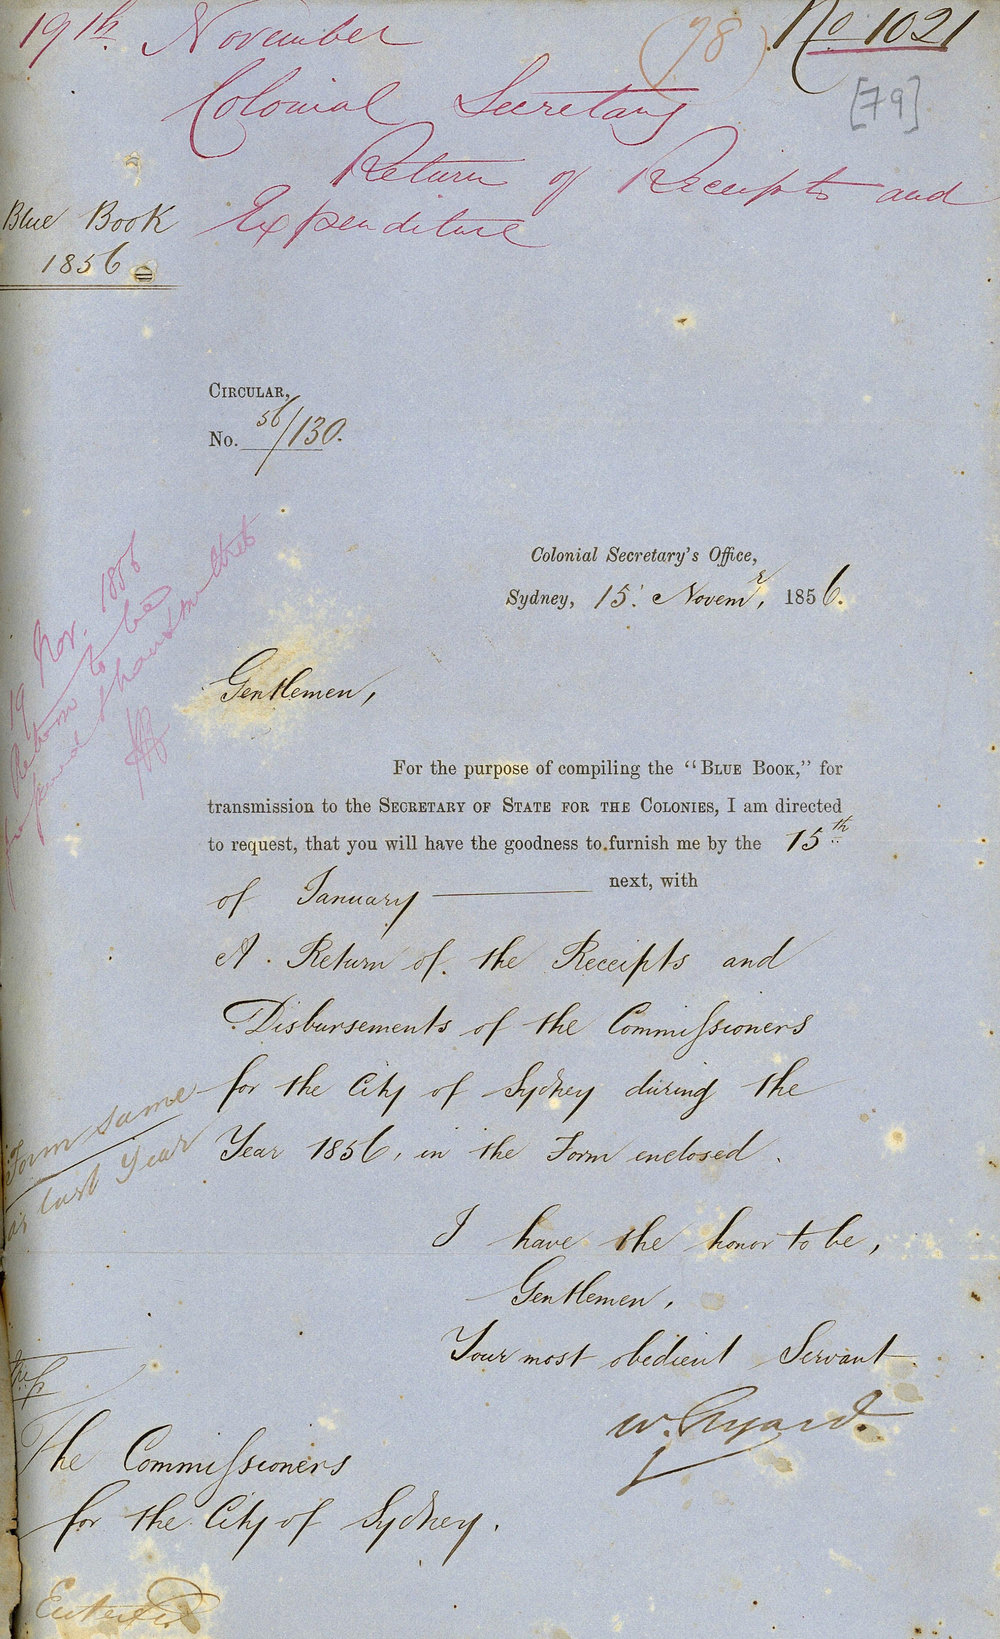 19th November
(78)
No 1021
[79]
Colonial Secretary
Return of Receipts and
Expenditure
Blue Book
1856
CIRCULAR,
No. 56/130.
Colonial Secretary's Office,
Sydney, 15. Novemr, 1856.
19 Nov. 1856
Return to be
Gentlemen,
For the purpose of compiling the "BLUE BOOK," for
transmission to the SECRETARY OF STATE FOR THE COLONIES, I am directed
to request, that you will have the goodness to furnish me by the 15th
of January next, with
A Return of the Receipts and
Disbursements of the Commissioners
for the City of Sydney during the
Year 1856, in the Form enclosed.
Form same
as last Year
I have the honor to be,
Gentlemen,
Your most obedient Servant
The Commissioners
for the City of Sydney.
Entered